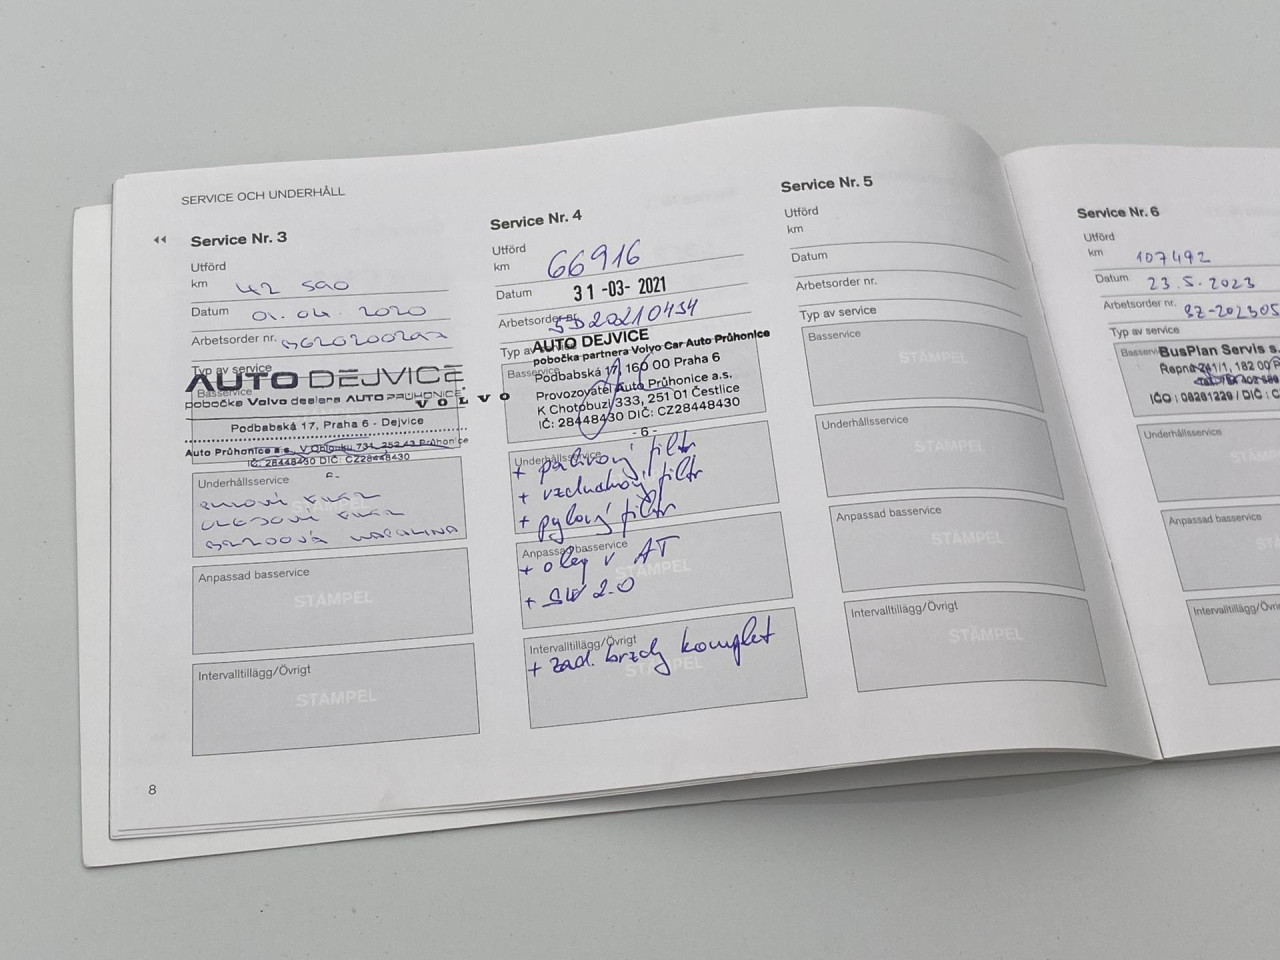 SERVICE OCH UNDERHÅLL
Service Nr. 3
Utförd
km 42 500
Datum 01. 04. 2020
Arbetsorder nr.
Typ av service
Basservice
AUTO DEJVICE
pobočka Volvo dealera AUTO PRŮHONICE
VOLVO
Podbabská 17, Praha 6 - Dejvice
Auto Průhonice a.s., V Oblouku 731, 252 43 Průhonice
IČ: 28448430 DIČ: CZ28448430
Underhållsservice
PYLOVÝ FILTR
OLEJOVÝ FILTR
BRZDOVÁ KAPALINA
Anpassad basservice
STÄMPEL
Intervalltillägg/Övrigt
STÄMPEL
8
Service Nr. 4
Utförd
km 66916
Datum 31-03-2021
Arbetsorder nr. SD20210434
Typ av service
Basservice
AUTO DEJVICE
pobočka partnera Volvo Car Auto Průhonice
Podbabská 17, 160 00 Praha 6
Provozovatel Auto Průhonice a.s.
K Chotobuzi 333, 251 01 Čestlice
IČ: 28448430 DIČ: CZ28448430
- 6 -
Underhållsservice
+ palivový filtr
+ vzduchový filtr
+ pylový filtr
Anpassad basservice
STÄMPEL
+ olej v AT
+ SW 2.0
Intervalltillägg/Övrigt
STÄMPEL
+ zad. brzdy komplet
Service Nr. 5
Utförd
km
Datum
Arbetsorder nr.
Typ av service
Basservice
STÄMPEL
Underhållsservice
STÄMPEL
Anpassad basservice
STÄMPEL
Intervalltillägg/Övrigt
STÄMPEL
Service Nr. 6
Utförd
km 107492
Datum 23.5.2023
Arbetsorder nr. SZ-202305
Typ av service
Basservice
BusPlan Servis s.
Řepná 241/1, 182 00 P
IČO : 08281229 / DIČ : C
Underhållsservice
STÄMP
Anpassad basservice
STÄMP
Intervalltillägg/Övri
STÄM